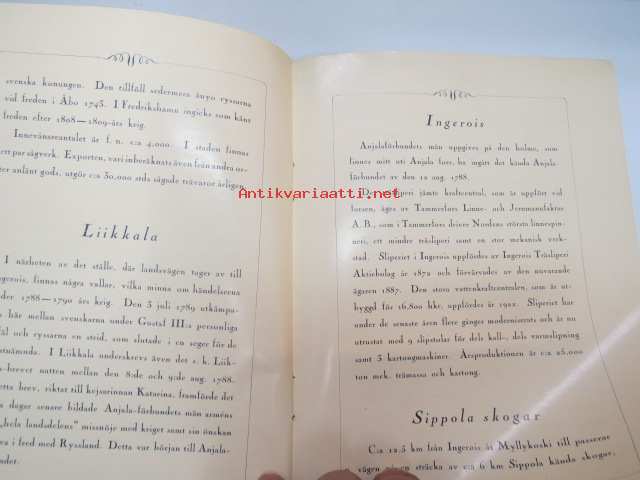 svenska konungen. Den tillföll sedermera ånyo ryssarna
vid freden i Åbo 1743. I Fredrikshamn ingicks som känt
freden efter 1808—1809-års krig.
Innevånareantalet är f. n. c:a 4,000. I staden finnas
ett par sågverk. Exporten, vari inberäknats även från andra or-
ter anlänt gods, utgör c:a 30,000 stds sågade trävaror årligen.
Liikkala
I närheten av det ställe, där landsvägen tager av till
finnas några vallar, vilka minna om händelserna
1788—1790 års krig. Den 3 juli 1789 utkämpa-
här mellan svenskarna under Gustaf III:s personliga
och ryssarna en strid, som slutade i seger för de
I Liikkala underskrevs även det s. k. Liik-
-brevet natten mellan den 8:de och 9:de aug. 1788.
detta brev, riktat till kejsarinnan Katarina, framförde det
dagar senare bildade Anjala-förbundets män arméns
„hela landdelens” missnöje med kriget samt sin önskan
i fred med Ryssland. Detta var början till Anjala-
Ingerois
Anjalaförbundets män uppgives på den holme, som
finnes mitt uti Anjala fors, ha ingått det kända Anjala-
förbundet av den 12 aug. 1788.
Det träsliperi jämte kraftcentral, som är uppfört vid
forsen, äges av Tammerfors Linne- och Jernmanufaktur
A. B., som i Tammerfors driver Nordens största linnespin-
neri, ett mindre träsliperi samt en stor mekanisk verk-
stad. Sliperiet i Ingerois uppfördes av Ingerois Träsliperi
Aktiebolag år 1872 och förvärvades av den nuvarande
ägaren 1887. Den stora vattenkraftcentralen, som är ut-
byggd för 16.800 hkr, uppfördes 1922. Sliperiet har
under de senaste åren flere gånger moderniserats och är nu
utrustat med 9 slipstolar för dels kall-, dels varmslipning
samt 3 kartongmaskiner. Årsproduktionen är c:a 25,000
ton mek. trämassa och kartong.
Sippola skogar
C:a 12.5 km från Ingerois åt Myllykoski till passerar
vägen på en sträcka av c:a 6 km Sippola kända skogar,
Antikvariaatti.net